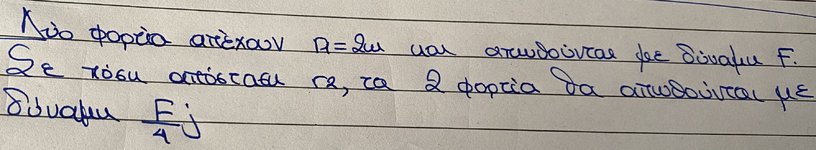 Δύο φορτία απέχουν r1=2m και απωθούνται με δύναμη F.
Σε πόση απόσταση r2, τα 2 φορτία θα απωθούνται με
δύναμη F/4;